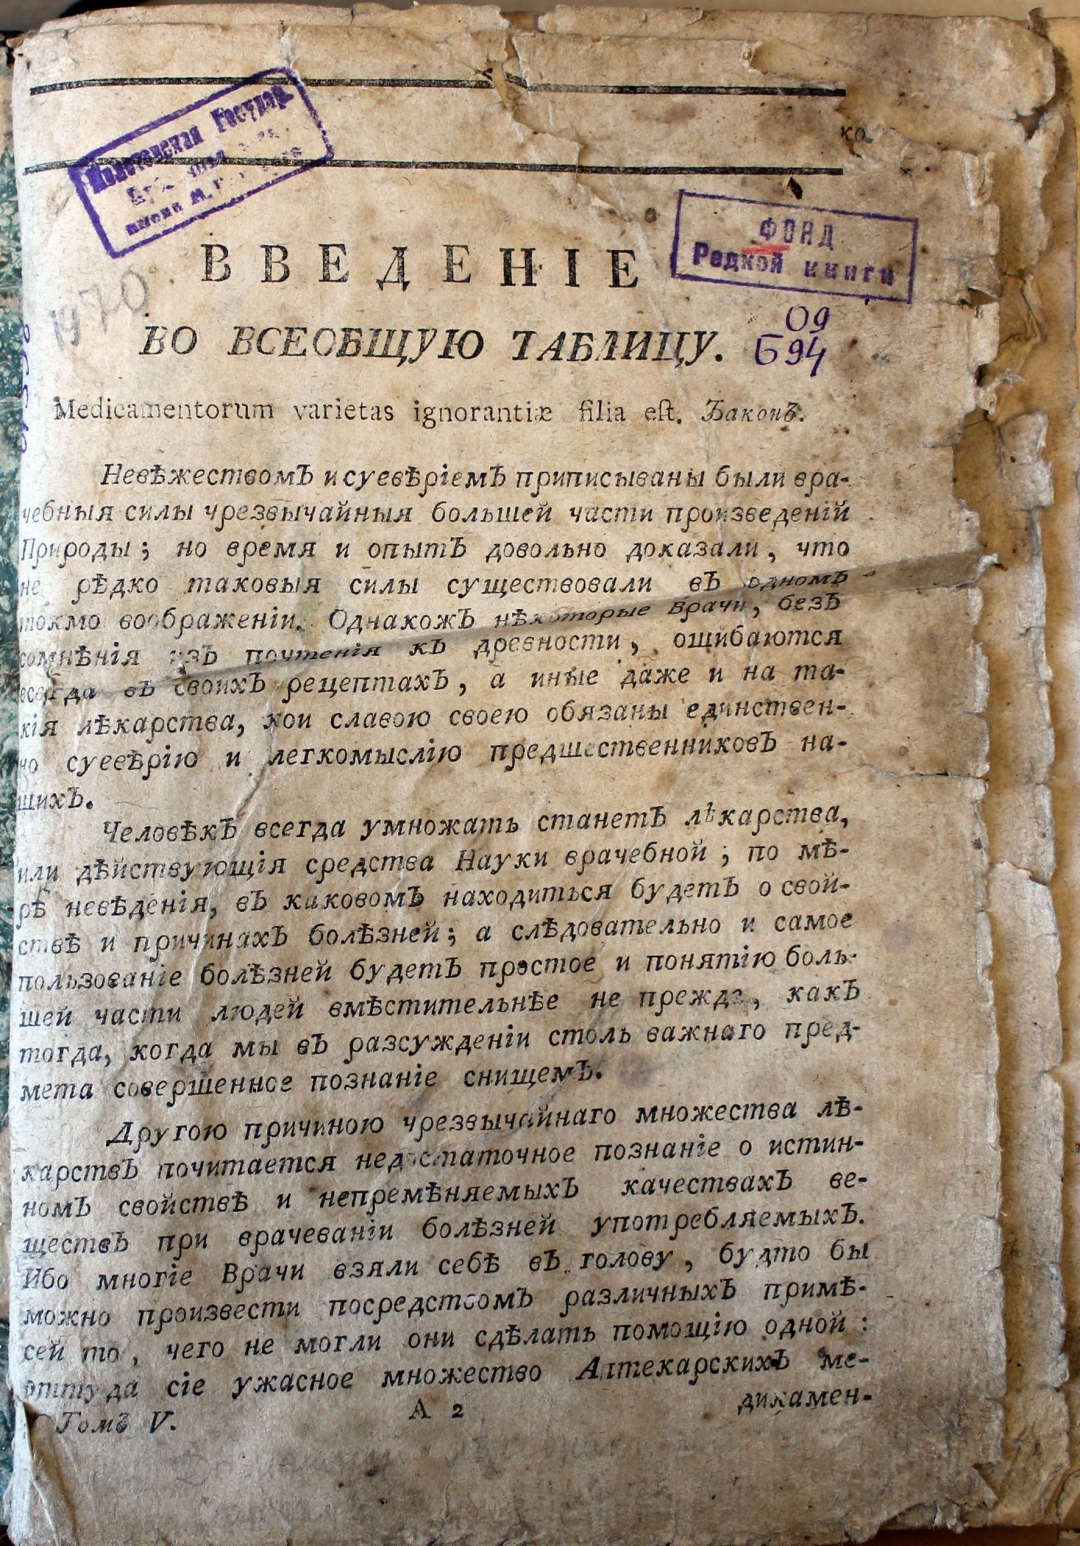 ка
Молотовская Государ.
имени М. Горького
ФОНД
Редкой книги
09
Б94
1970
ВВЕДЕНІЕ
ВО ВСЕОБЩУЮ ТАБЛИЦУ.
Medicamentorum varietas ignorantiæ filia eſt. Баконъ.
Невѣжествомъ и суевѣріемъ приписываны были вра-
чебныя силы чрезвычайныя большей части произведеній
Природы; но время и опытъ довольно доказали, что
не рѣдко таковыя силы существовали въ одномъ
токмо воображеніи. Однакожъ нѣкоторые Врачи, безъ
сомнѣнія изъ почтенія къ древности, ошибаются
всегда въ своихъ рецептахъ, а иные даже и на та-
кія лѣкарства, кои славою своею обязаны единствен-
но суевѣрію и легкомыслію предшественниковъ на-
шихъ.
Человѣкъ всегда умножать станетъ лѣкарства,
или дѣйствующія средства Науки врачебной; по мѣ-
рѣ невѣденія, въ каковомъ находиться будетъ о свой-
ствѣ и причинахъ болѣзней; а слѣдовательно и самое
пользованіе болѣзней будетъ простое и понятію боль-
шей части людей вмѣстительнѣе не прежде, какъ
тогда, когда мы въ разсужденіи столь важнаго пред-
мета совершенное познаніе снищемъ.
Другою причиною чрезвычайнаго множества лѣ-
карствъ почитается недостаточное познаніе о истин-
номъ свойствѣ и непремѣняемыхъ качествахъ ве-
ществъ при врачеваніи болѣзней употребляемыхъ.
Ибо многіе Врачи взяли себѣ въ голову, будто бы
можно произвести посредствомъ различныхъ примѣ-
сей то, чего не могли они сдѣлать помощію одной:
оттуда сіе ужасное множество Аптекарскихъ ме-
Томъ V. А 2 дикамен-